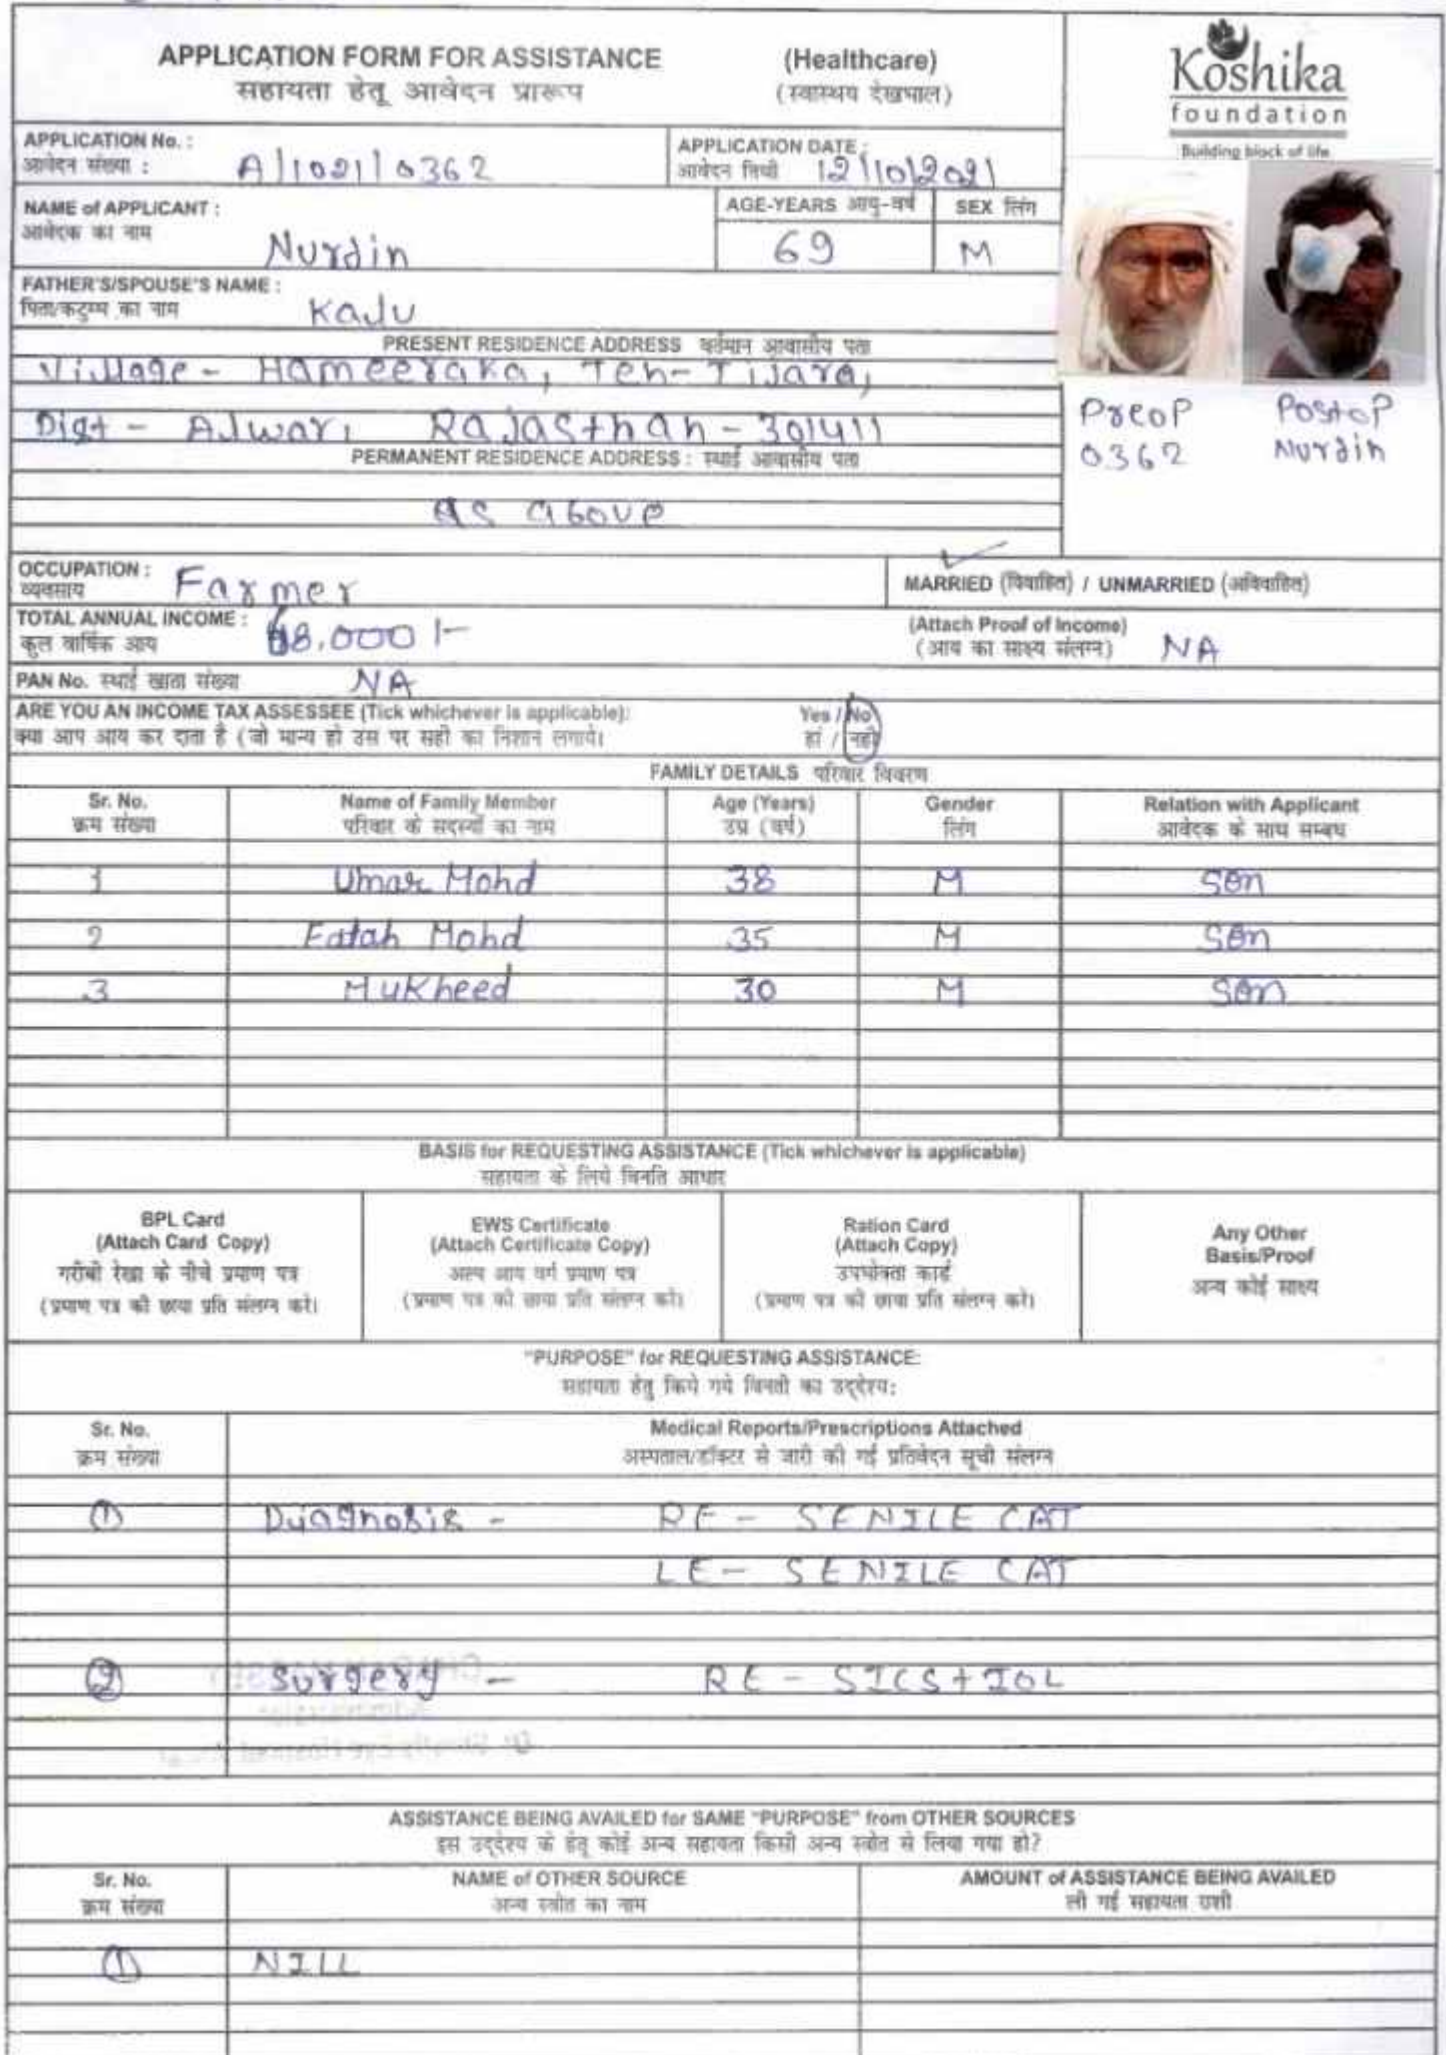 APPLICATION FORM FOR ASSISTANCE (Healthcare)
सहायता हेतू आवेदन प्रारूप (स्वास्थय देखभाल)
Koshika
foundation
Building block of life
APPLICATION No. :
आवेदन संख्या : A/1021/0362
APPLICATION DATE :
आवेदन तिथी 12/10/2021
NAME of APPLICANT :
आवेदक का नाम Nurdin
AGE-YEARS आयु-वर्ष
69
SEX लिंग
M
FATHER'S/SPOUSE'S NAME :
पिता/कटुम्म का नाम Kalu
PRESENT RESIDENCE ADDRESS वर्तमान आवासीय पता
Village - Hameeraka, Teh- Tijara,
Dist - Alwar, Rajasthan - 301411
PERMANENT RESIDENCE ADDRESS : स्थाई आवासीय पता
as above
Preop Postop
0362 Nurdin
OCCUPATION :
व्यवसाय Farmer
MARRIED (विवाहित) / UNMARRIED (अविवाहित)
TOTAL ANNUAL INCOME :
कुल वार्षिक आय 8,000/-
(Attach Proof of Income)
(आय का साक्ष्य संलग्न) NA
PAN No. स्थाई खाता संख्या NA
ARE YOU AN INCOME TAX ASSESSEE (Tick whichever is applicable): Yes / No
क्या आप आय कर दाता है (जो मान्य हो उस पर सही का निशान लगाये। हां / नही
FAMILY DETAILS परिवार विवरण
Sr. No. Name of Family Member Age (Years) Gender Relation with Applicant
क्रम संख्या परिवार के सदस्यों का नाम उम्र (वर्ष) लिंग आवेदक के साथ सम्बध
1 Umar Mohd 38 M Son
2 Fatah Mohd 35 M Son
3 Mukheed 30 M Son
BASIS for REQUESTING ASSISTANCE (Tick whichever is applicable)
सहायता के लिये विनति आधार
BPL Card
(Attach Card Copy)
गरीबी रेखा के नीचे प्रमाण पत्र
(प्रमाण पत्र की छाया प्रति संलग्न करे।
EWS Certificate
(Attach Certificate Copy)
अल्प आय वर्ग प्रमाण पत्र
(प्रमाण पत्र की छाया प्रति संलग्न करे।
Ration Card
(Attach Copy)
उपभोक्ता कार्ड
(प्रमाण पत्र की छाया प्रति संलग्न करे।
Any Other
Basis/Proof
अन्य कोई साक्ष्य
"PURPOSE" for REQUESTING ASSISTANCE:
सहायता हेतु किये गये विनती का उद्देश्य:
Sr. No. Medical Reports/Prescriptions Attached
क्रम संख्या अस्पताल/डॉक्टर से जारी की गई प्रतिवेदन सूची संलग्न
1 Diagnosis - RE - SENILE CAT
LE - SENILE CAT
2 Surgery - RE - SICS + IOL
ASSISTANCE BEING AVAILED for SAME "PURPOSE" from OTHER SOURCES
इस उद्देश्य के हेतू कोई अन्य सहायता किसी अन्य स्त्रोत से लिया गया हो?
Sr. No. NAME of OTHER SOURCE AMOUNT of ASSISTANCE BEING AVAILED
क्रम संख्या अन्य स्त्रोत का नाम ली गई सहायता राशी
1 NILL